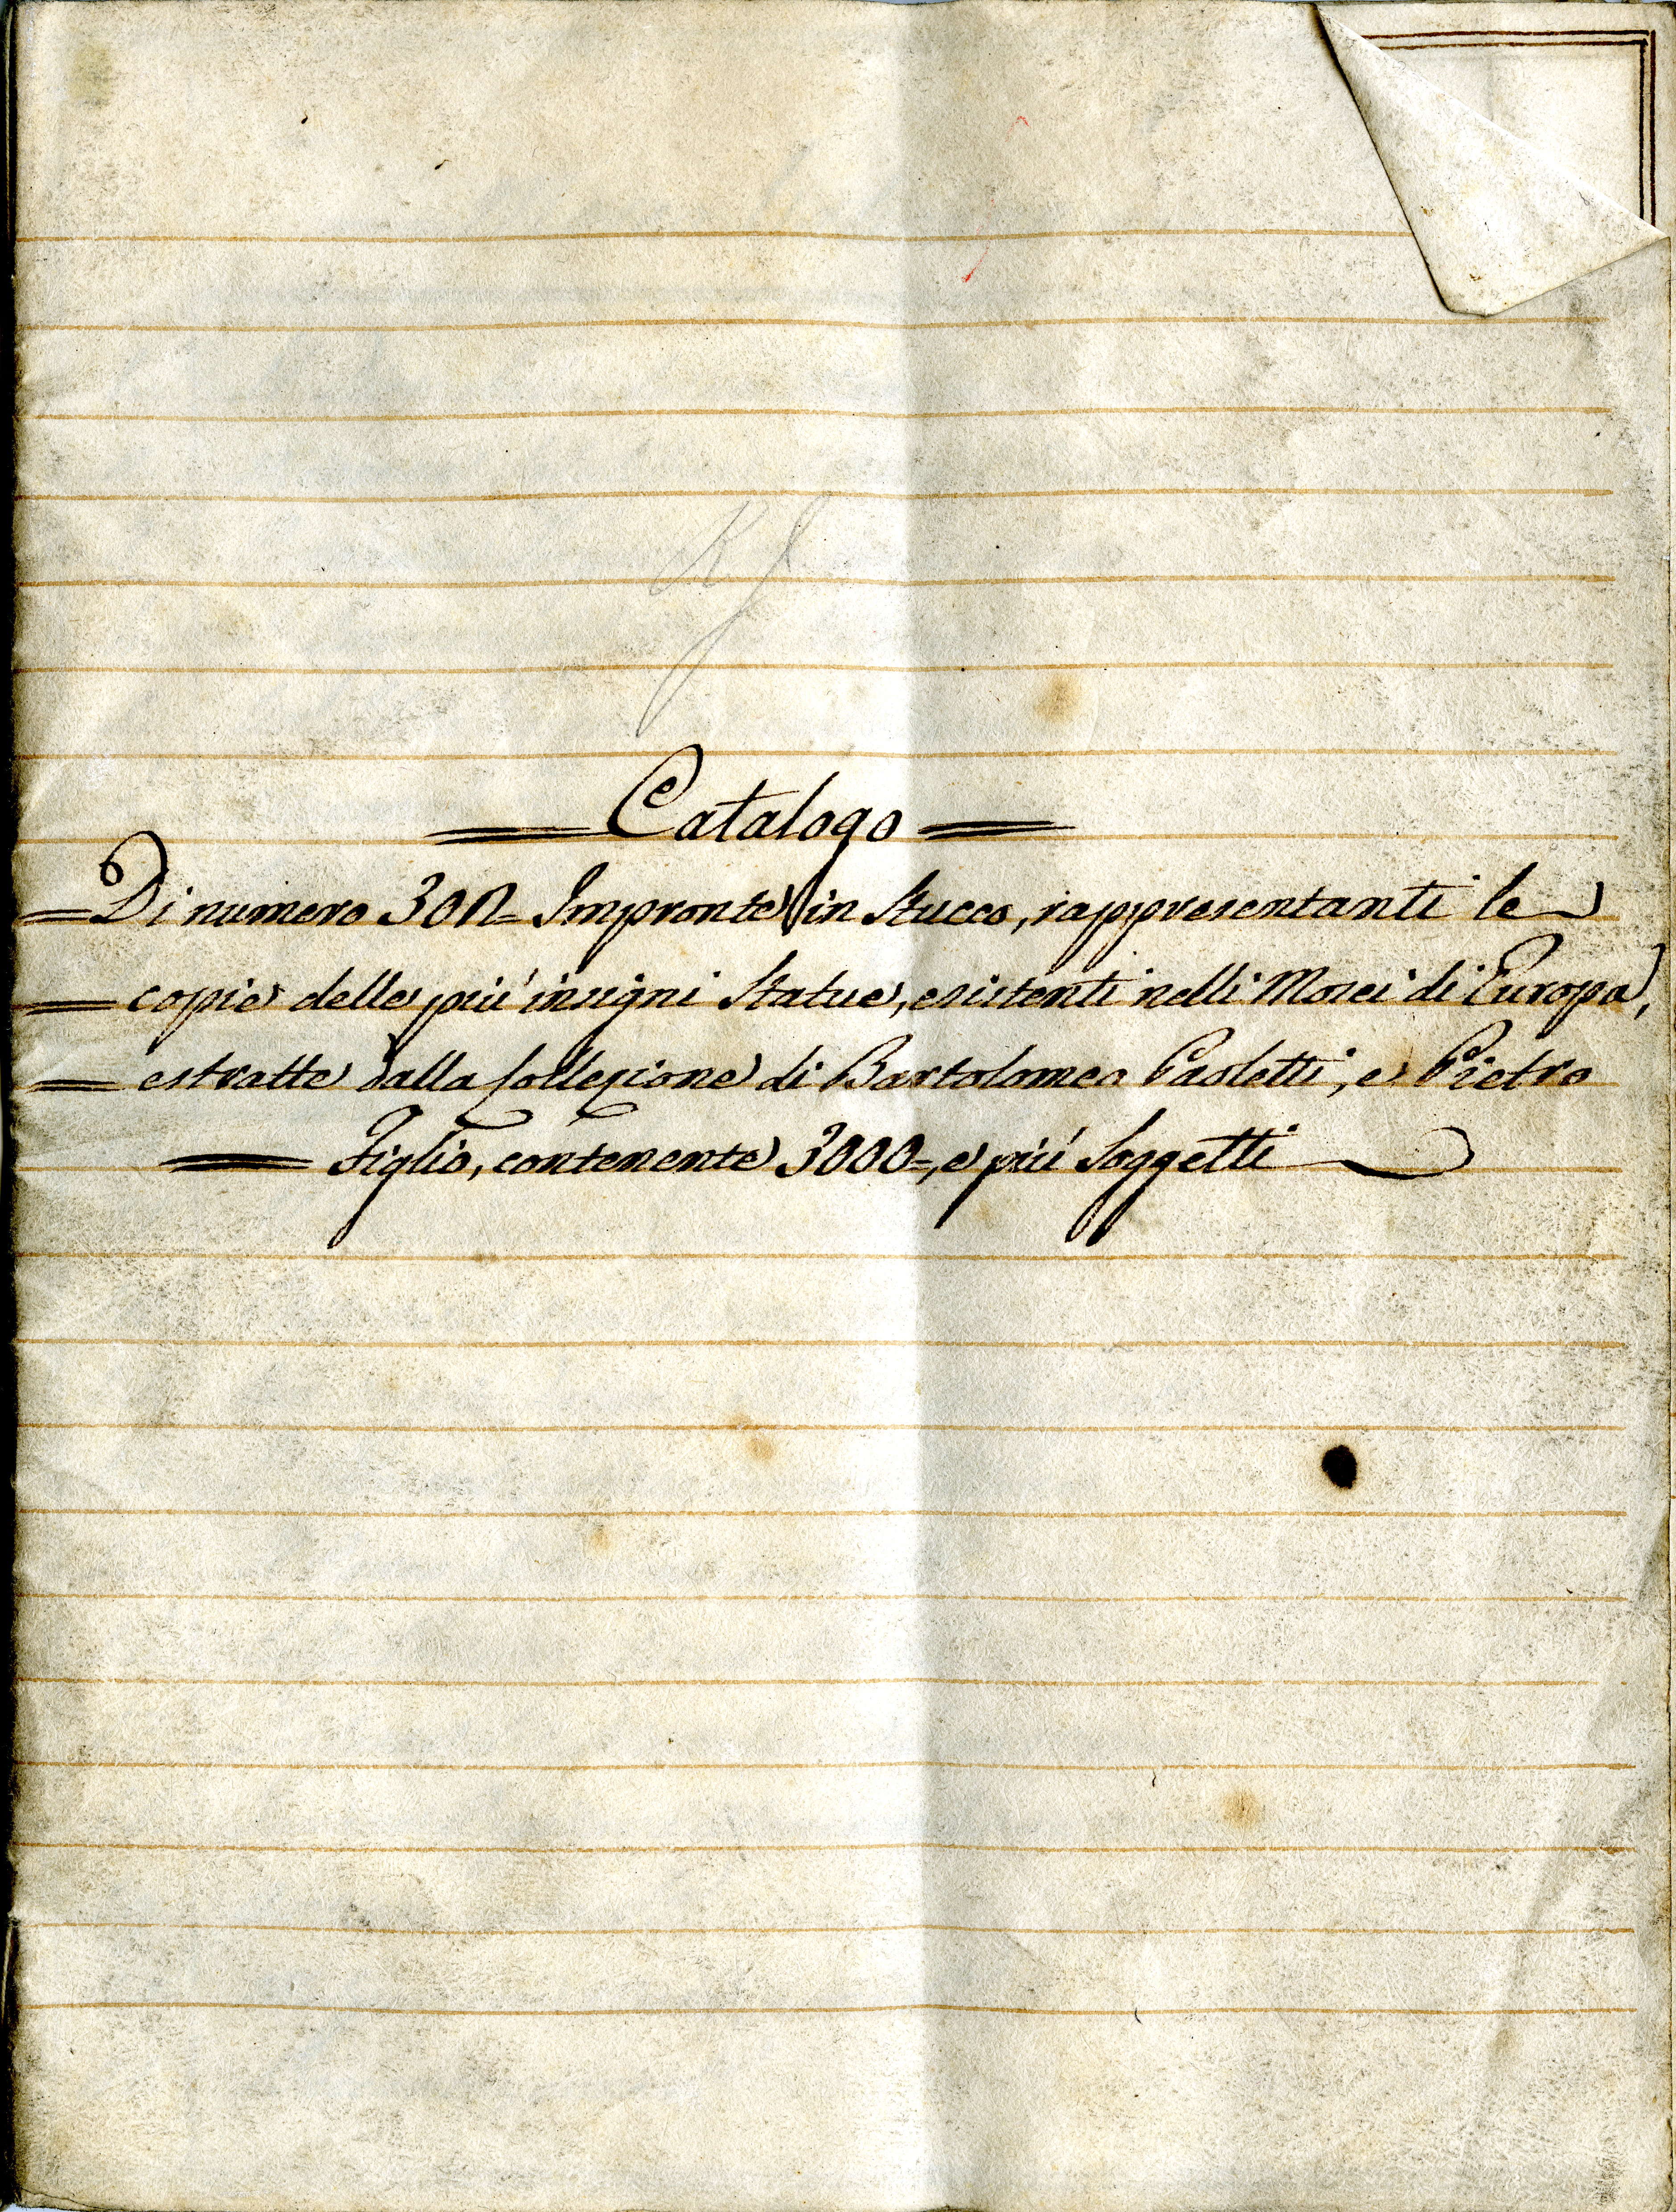 Catalogo
Di numero 300= Impronte in Stucco, rappresentanti le
copie delle piu' insigni Statue, esistenti nelli Mosei di Europa,
estratte dalla Collezione di Bartolomeo Paoletti, e Pietro
Figlio, contenente 3000=, e piu' Soggetti